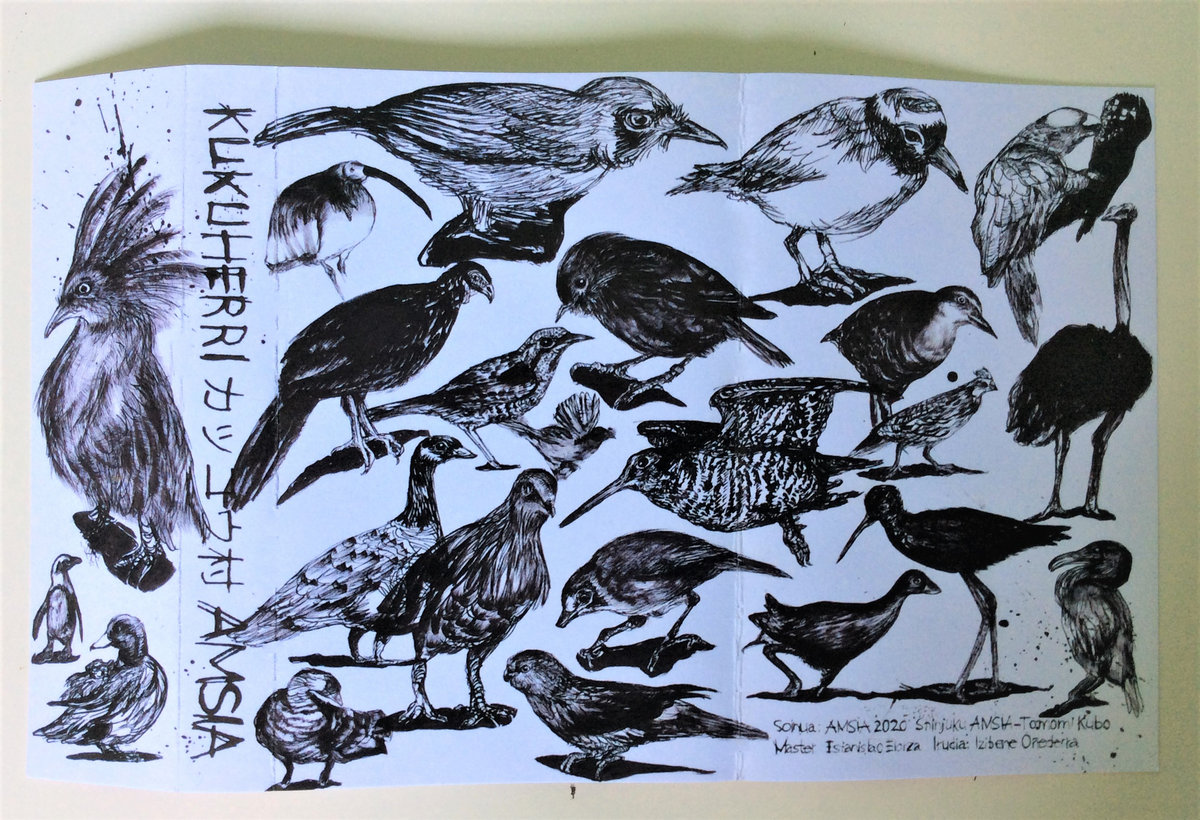 KUKUHERRI カッコウ村 AMSIA
Soinua: AMSIA 2020 Shinjuku AMSIA-Tomomi Kubo
Master Estanislao Elorza Irudia: Izibene Oñederra